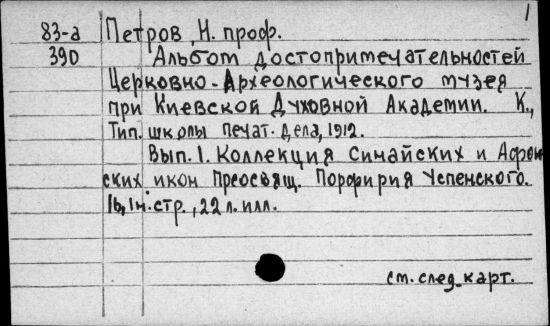 1
83-а Петров, Н. проф.
390 Альбом достопримечательностей
Церковно-Археологического музея
при Киевской Духовной Академии. К.,
Тип. школы печат. дела, 1912.
Вып. 1. Коллекция Синайских и Афон-
ских икон Преосвящ. Порфирия Успенского.
16, 1н. стр., 22 л. илл.
см. след. карт.